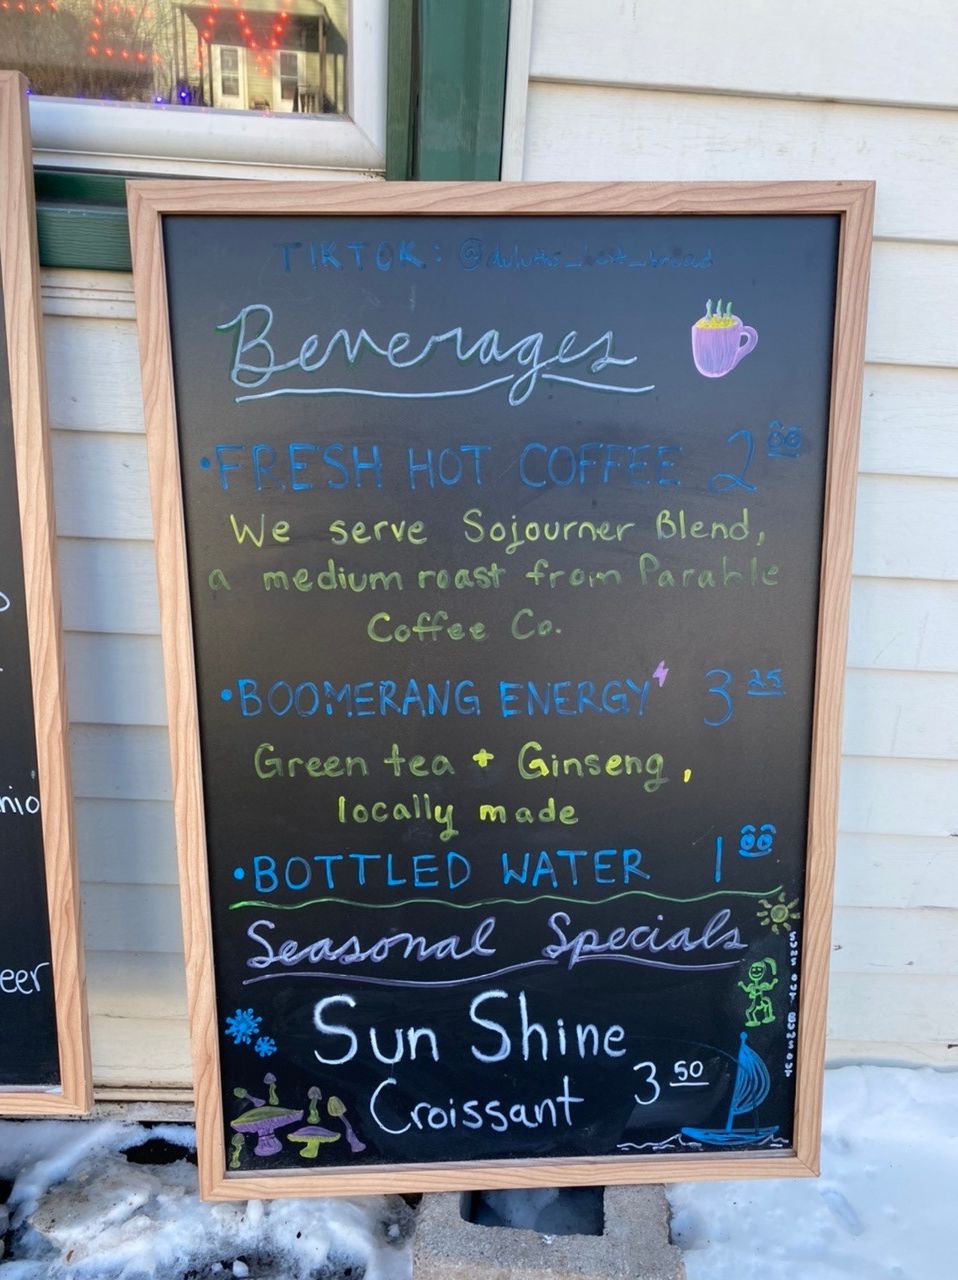 TIKTOK: @duluths_best_bread
Beverages
•FRESH HOT COFFEE 2 00
We serve Sojourner Blend,
a medium roast from Parable
Coffee Co.
•BOOMERANG ENERGY 3 25
Green tea + Ginseng,
locally made
•BOTTLED WATER 1 00
Seasonal Specials
SUNS OUT BUNS OUT
Sun Shine
Croissant 3 50
nio
eer